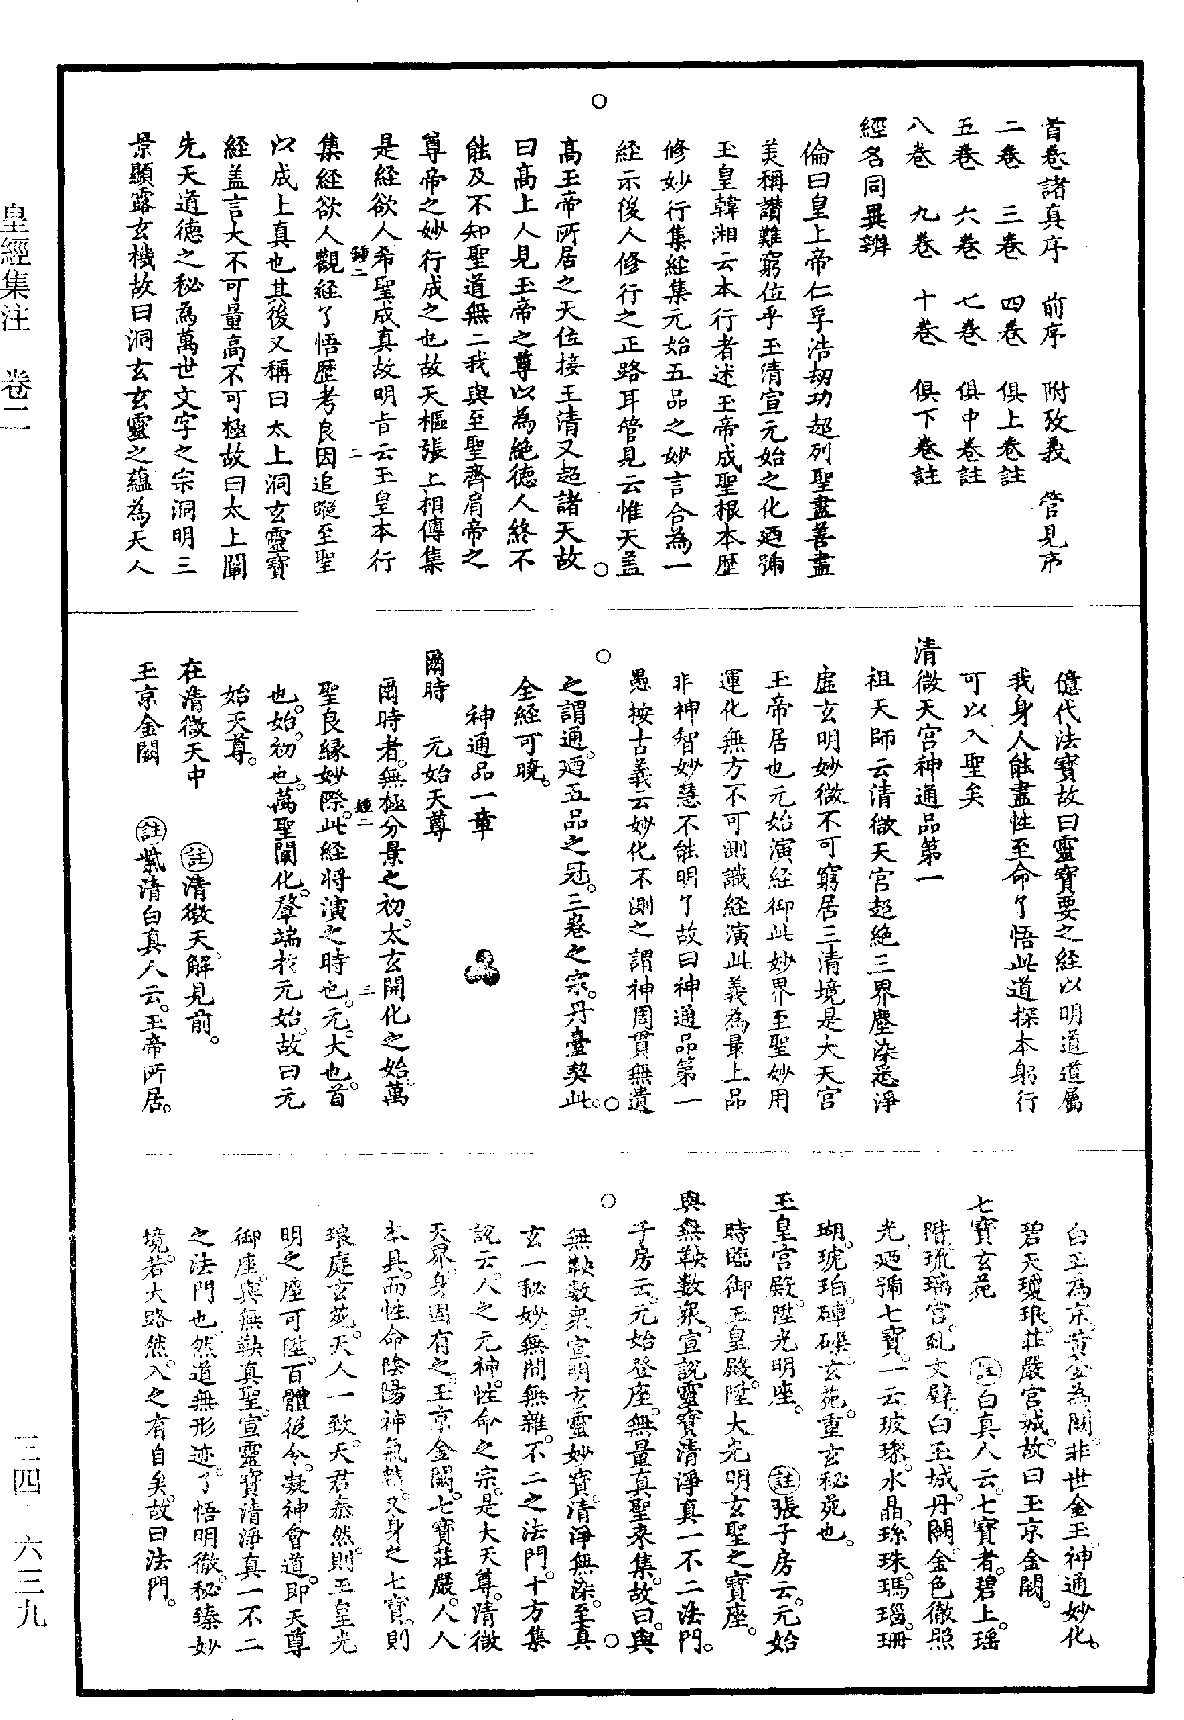 首卷諸真序　前序　附攷義　管見序
二卷　三卷　四卷　俱上卷註
五卷　六卷　七卷　俱中卷註
八卷　九卷　十卷　俱下卷註
經名同異辨
倫曰皇上帝仁孚浩劫功超列聖盡善盡
美稱讚難窮位乎玉清宣元始之化廼號
玉皇韓湘云本行者述玉帝成聖根本歷
修妙行集經集元始五品之妙言合為一
經示後人修行之正路耳管見云惟天蓋
高玉帝所居之天位接玉清又超諸天故
曰高上人見玉帝之尊以為絶德人終不
能及不知聖道無二我與至聖齊肩帝之
尊帝之妙行成之也故天樞張上相傳集
是經欲人希聖成真故明肯云玉皇本行
集經欲人觀經了悟歷考良因追蹤至聖
以成上真也其後又稱曰太上洞玄靈寶
經盖言大不可量高不可極故曰太上闡
先天道德之秘為萬世文字之宗洞明三
景顯露玄機故曰洞玄玄靈之蘊為天人
億代法寶故曰靈寶要之經以明道道屬
我身人能盡性至命了悟此道探本躬行
可以入聖矣
清微天宮神通品第一
祖天師云清微天宮超絶三界塵染悉淨
虛玄明妙微不可窮居三清境是大天宮
玉帝居也元始演經御此妙界至聖妙用
運化無方不可測識經演此義為最上品
非神智妙慧不能明了故曰神通品第一
愚按古義云妙化不測之謂神周貫無遺
之謂通。廼五品之冠。三卷之宗。丹臺契此。
全經可曉。
神通品一章
爾時　元始天尊
爾時者。無極分景之初。太玄開化之始。萬
聖良緣妙際。此經將演之時也。元。大也。首
也。始。初也。萬聖闡化。肇端於元始。故曰元
始天尊。
在清微天中　註清微天解見前。
玉京金闕　註紫清白真人云。玉帝所居。
白玉為京。黃金為闕。非世金玉。神通妙化。
碧天瓊琅。莊嚴宮城。故曰玉京金闕。
七寶玄苑　註白真人云。七寶者。碧上瑤
階。琉璃宮。虬文壁。白玉城。丹闕。金色徹照
光。廼號七寶。一云玻瓈。水晶。珍珠。瑪瑙。珊
瑚。琥珀。硨磲。玄苑。重玄秘苑也。
玉皇宮殿。陞光明座。　註張子房云。元始
時臨御玉皇殿。陞大光明玄聖之寶座。
與無鞅數衆。宣說靈寶清淨真一不二法門。
子房云。元始登座。無量真聖來集。故曰。與
無鞅數衆。宣明玄靈妙寶。清淨無染。至真
玄一秘妙。無間無雜。不二之法門。十方集
說云。人之元神。性命之宗。是大天尊。清微
天界。身固有之。玉京金闕。七寶莊嚴。人人
本具。而性命陰陽神氣精。又身之七寶。則
琅庭玄苑。天人一致。天君泰然。則玉皇光
明之座可陞。百體從令。凝神會道。即天尊
御座。與無鞅真聖。宣靈寶清淨真一不二
之法門也。然道無形迹。了悟明徹。秘臻妙
境。若大路然。入之有自矣。故曰法門。
皇經集注　卷二
三四　六三九